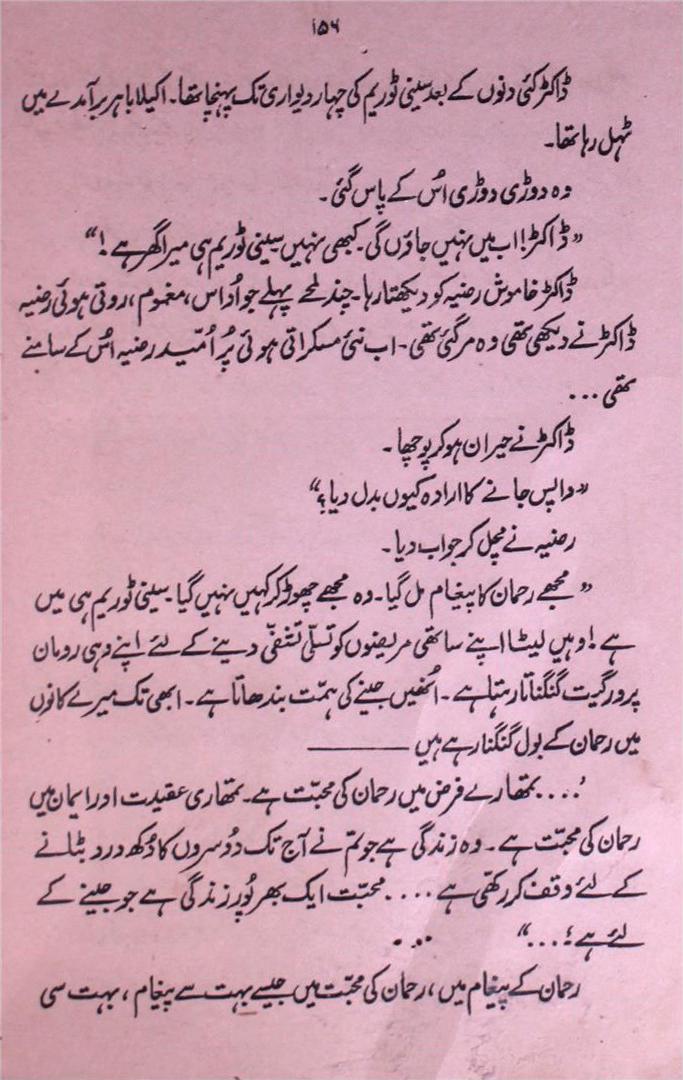 ۱۵۶
ڈاکٹر کئی دنوں کے بعد سینی ٹوریم کی چہار دیواری تک پہنچا تھا۔ اکیلا باہر برآمدے میں
ٹہل رہا تھا۔
وہ دوڑی دوڑی اُس کے پاس گئی۔
”ڈاکٹر! اب میں نہیں جاؤں گی۔ کبھی نہیں سینی ٹوریم ہی میرا گھر ہے!“
ڈاکٹر خاموش رضیہ کو دیکھتا رہا۔ چند لمحے پہلے جو اُداس، مغموم، روتی ہوئی رضیہ
ڈاکٹر نے دیکھی تھی وہ مر گئی تھی۔ اب نئی مسکراتی ہوئی پُر اُمّید رضیہ اُس کے سامنے
تھی...
ڈاکٹر نے حیران ہو کر پوچھا۔
”واپس جانے کا ارادہ کیوں بدل دیا؟“
رضیہ نے مچل کر جواب دیا۔
”مجھے رحمان کا پیغام مل گیا۔ وہ مجھے چھوڑ کر کہیں نہیں گیا۔ سینی ٹوریم ہی میں
ہے! وہیں لیٹا اپنے ساتھی مریضوں کو تسلّی تشفّی دینے کے لئے اپنے وہی رومان
پرور گیت گنگناتا رہتا ہے۔ اُنھیں جینے کی ہمّت بندھاتا ہے۔ ابھی تک میرے کانوں
میں رحمان کے بول گنگنا رہے ہیں ————
’.... تمھارے فرض میں رحمان کی محبّت ہے۔ تمھاری عقیدت اور ایمان میں
رحمان کی محبّت ہے۔ وہ زندگی ہے جو تم نے آج تک دُوسروں کا دُکھ درد بٹانے
کے لئے وقف کر رکھی ہے .... محبّت ایک بھرپُور زندگی ہے جو جینے کے
لئے ہے؛...“ ...
رحمان کے پیغام میں، رحمان کی محبّت میں جیسے بہت سے پیغام، بہت سی